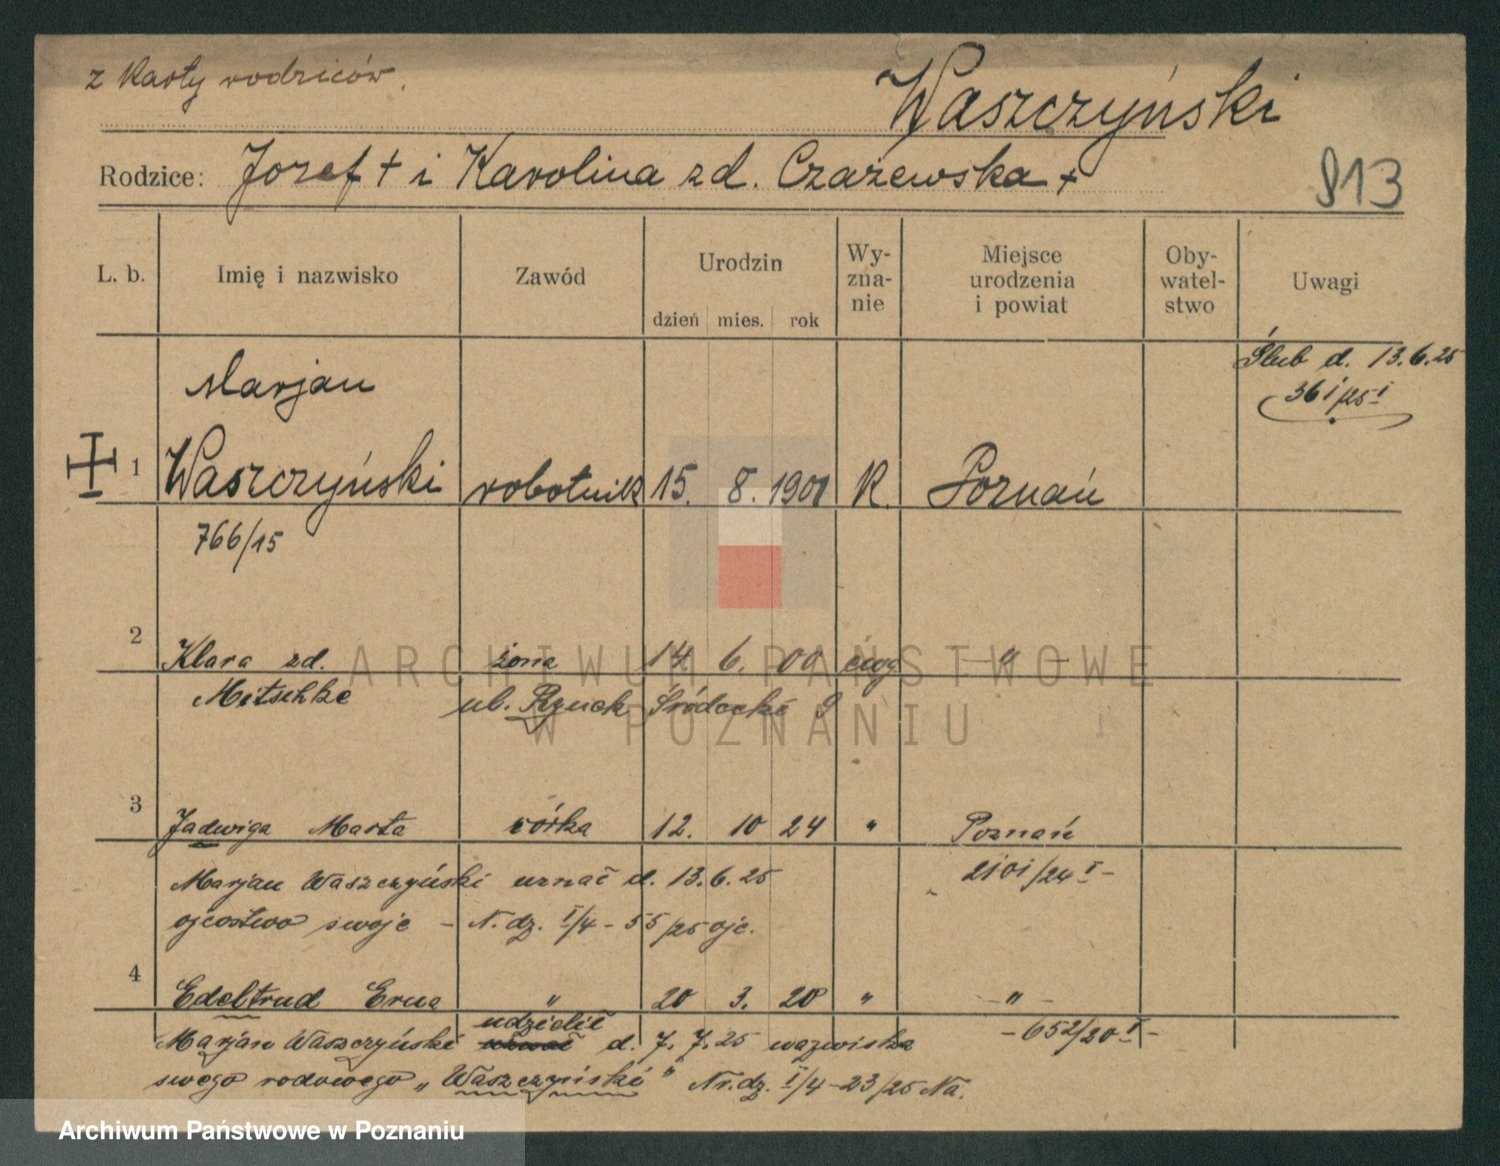 z karty rodziców.
Waszczyński
Rodzice: Jozef + i Karolina zd. Czażewska +
913
L. b. Imię i nazwisko Zawód Urodzin dzień mies. rok Wy-zna-nie Miejsce urodzenia i powiat Oby-watel-stwo Uwagi
Ślub d. 13.6.25
Marjan
1 Waszczyński robotnik 15. 8. 1901 R. Poznań
766/15
2 Klara zd. żona 14. 6. 00 ewg — " —
Mitschke ul. Rynek Śródecki 9
3 Jadwiga Marta córka 12. 10 24 " Poznań
2101/24 I -
Marjan Waszczyński uznał d. 13.6.25
ojcostwo swoje - N. dz. I/4 - 55/25 ojc.
4 Edeltrud Erna " 20 3. 20 " — " —
udzielił
Marjan Waszczyński d. 7.7.25 nazwiska
- 652/20 I -
swego rodowego „Waszczyński" Nr. dz. I/4 - 23/25 Na.
ARCHIWUM PAŃSTWOWE
W POZNANIU
Archiwum Państwowe w Poznaniu